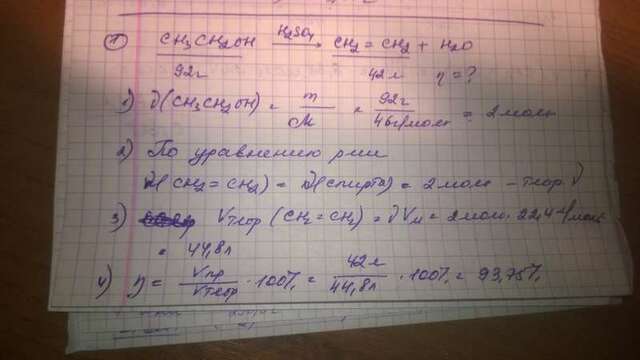 ① CH3CH2OH H2SO4→ CH2 = CH2 + H2O
92г 42л η = ?
1) ν(CH3CH2OH) = m/M = 92г/46г/моль = 2 моль
2) По уравнению р-ии
ν(CH2 = CH2) = ν(спирта) = 2 моль - теор. ν
3) Vтеор (CH2 = CH2) = νVм = 2 моль · 22,4 л/моль
= 44,8 л
4) η = Vпр/Vтеор · 100% = 42л/44,8л · 100% = 93,75%